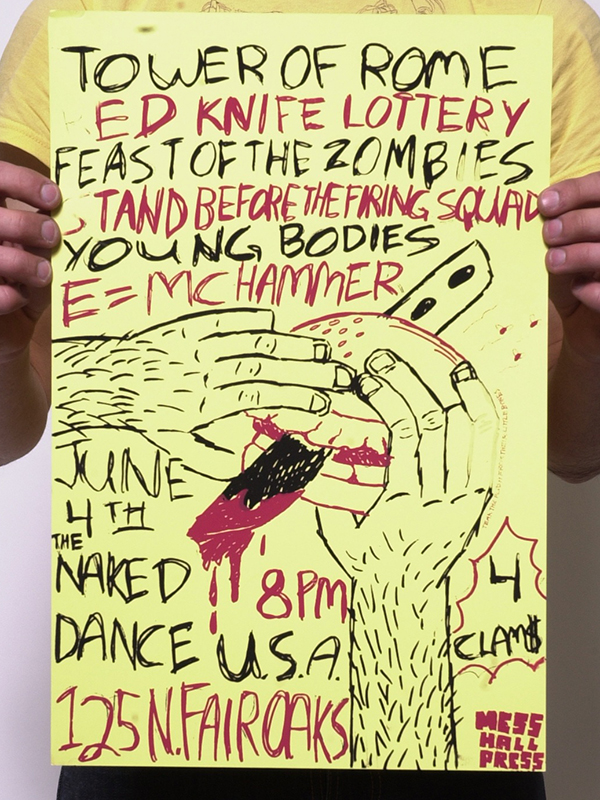 TOWER OF ROME
RED KNIFE LOTTERY
FEAST OF THE ZOMBIES
STAND BEFORE THE FIRING SQUAD
YOUNG BODIES
E=MC HAMMER
JUNE
4TH
THE
NAKED
DANCE U.S.A.
8PM
4
CLAM$
125 N. FAIR OAKS
MESS
HALL
PRESS